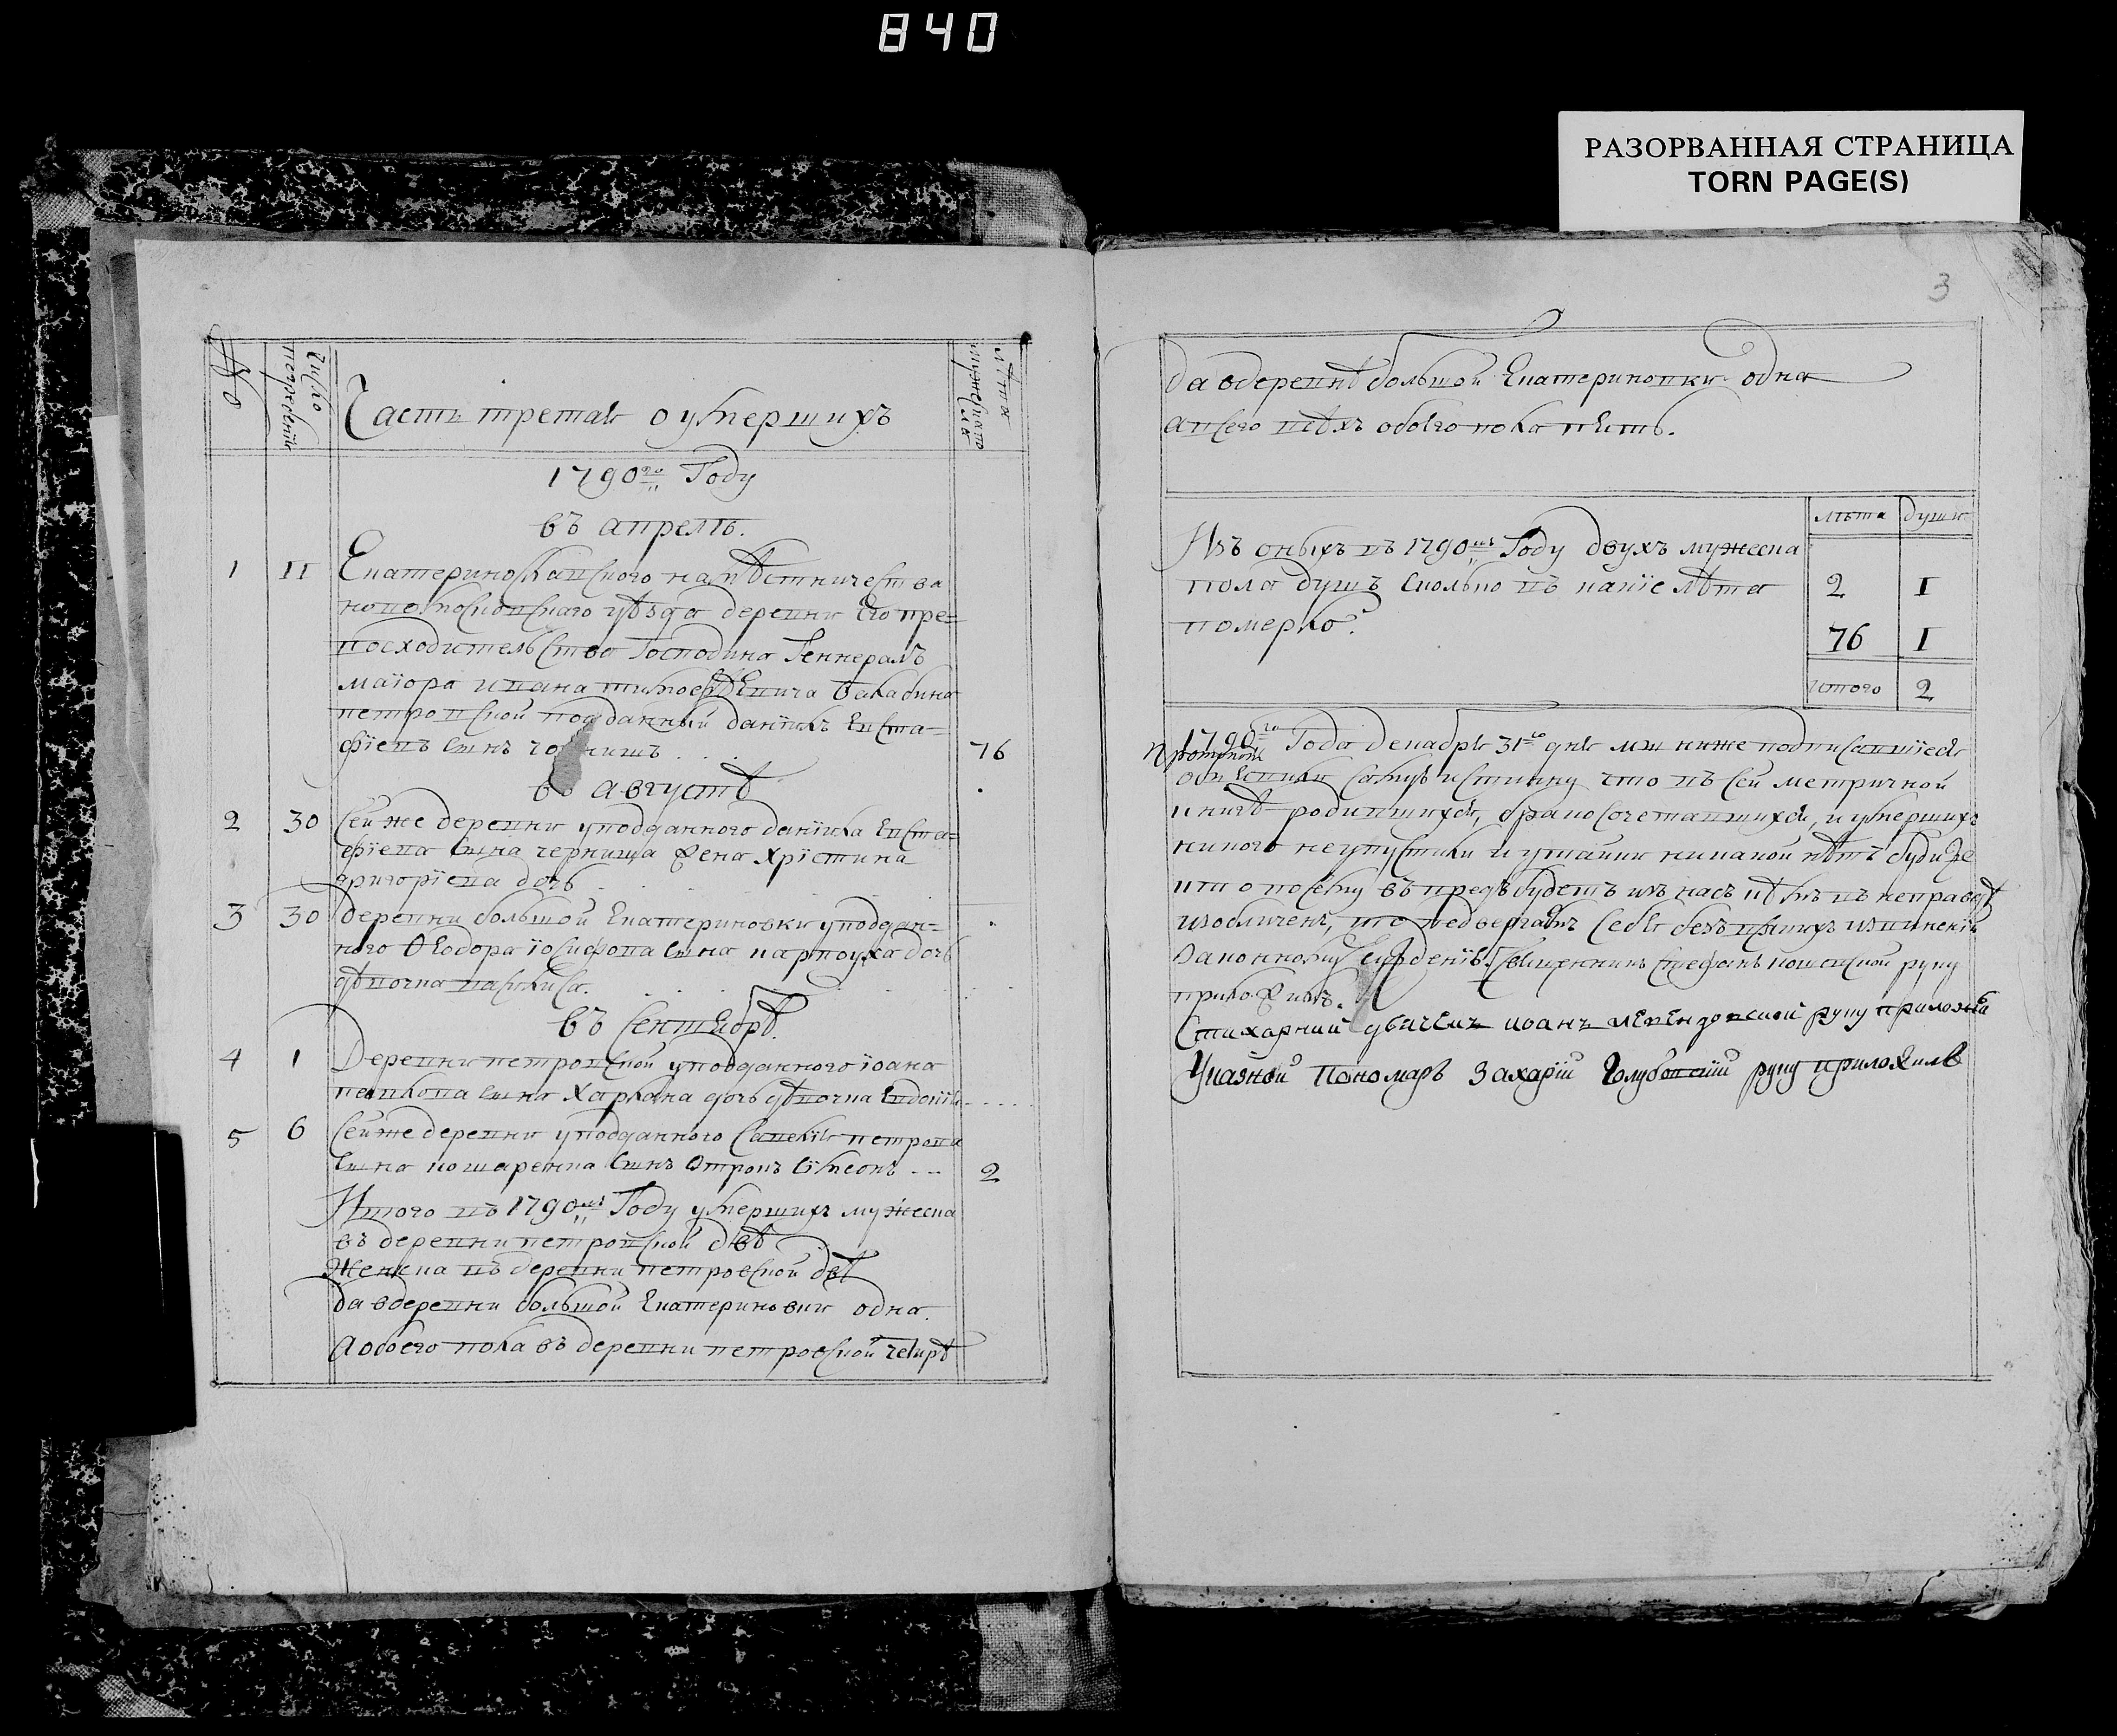 840
РАЗОРВАННАЯ СТРАНИЦА
TORN PAGE(S)
3
№
Число погребенія
Часть третая о умершихъ
лѣта мужеска
1790го Году
въ апрелѣ.
1 11 Екатеринославского намѣстничества
новомосковскаго уѣзда деревни Его пре=
восходителства Господина Генералъ
маіора ивана тимоееевича Салабина
петровской подданный даніилъ Евста=
фіевъ сынъ 76
въ августѣ
2 30 Сей же деревни у подданного даніила Евста=
фіева сына черниша жена христина
григоріева дочь
3 30 деревни большой Екатериновки у поддан=
ного Ѳеодора іосифова сына дочь
дѣвочка васси́лиса.
въ Сентябрѣ.
4 1 Деревни петровской у подданного іоана
павлова сына дочь дѣвочка Евдокія
5 6 Сей же деревни у подданного Савелія петрова
сына кошаренка сынъ отрокъ Сімеонъ 2
Итого въ 1790мъ Году умершихъ мужеска
въ деревни петровской двѣ
Женска въ деревни петровской двѣ
да вдеревни большой Екатериновки одна.
А обоего пола въ деревни петровской четырѣ
да вдеревнѣ большой Екатериновки одна
а всего всѣхъ обоего пола пять.
Изъ оныхъ въ 1790мъ Году двухъ мужеска
пола душъ сколько въ какіе лѣта
померло.
лѣта душъ
2 1
76 1
итого 2
1790го Года декабря 31го дня мы ниже подписавшіеся
самую истинну что въ сей метричной
книгѣ родившихся, бракосочетавшихся, и умершихъ
никого не упустили и утайки никакой нѣтъ буди же
кто по сему въ предь будетъ изъ насъ въ неправдѣ
изобличенъ, то подвергаемъ себя безъ всякихъ извиненія
законному сужденію. Священникъ Стефанъ руку
приложилъ.
Стихарний дьячекъ иоанъ руку приложилъ
Указной Пономарь Захарій Голубовскій руку приложилъ